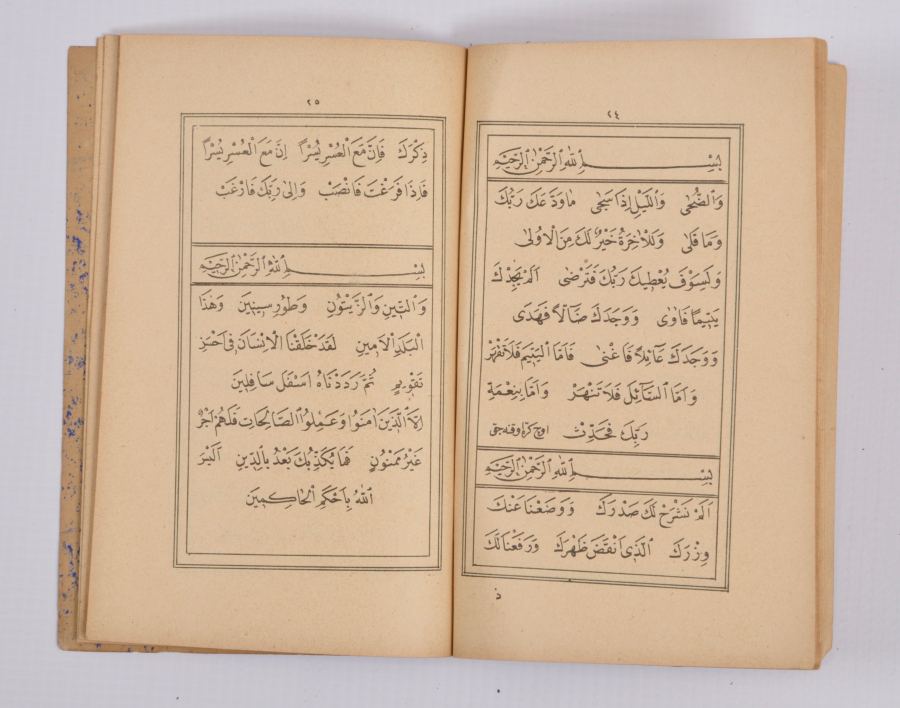 ٢٤
بِسْــمِ اللهِ الرَّحْمٰنِ الرَّحِيمِ
وَالضُّحٰى وَاللَّيْلِ اِذَا سَجٰى مَا وَدَّعَكَ رَبُّكَ
وَمَا قَلٰى وَلَلْاٰخِرَةُ خَيْرٌ لَكَ مِنَ الْاُولٰى
وَلَسَوْفَ يُعْطِيكَ رَبُّكَ فَتَرْضٰى اَلَمْ يَجِدْكَ
يَتِيمًا فَاٰوٰى وَوَجَدَكَ ضَآلًّا فَهَدٰى
وَوَجَدَكَ عَآئِلًا فَاَغْنٰى فَاَمَّا الْيَتِيمَ فَلَا تَقْهَرْ
وَاَمَّا السَّآئِلَ فَلَا تَنْهَرْ وَاَمَّا بِنِعْمَةِ
رَبِّكَ فَحَدِّثْ اوچ كره اوقنه جق
بِسْــمِ اللهِ الرَّحْمٰنِ الرَّحِيمِ
اَلَمْ نَشْرَحْ لَكَ صَدْرَكَ وَوَضَعْنَا عَنْكَ
وِزْرَكَ اَلَّذِى اَنْقَضَ ظَهْرَكَ وَرَفَعْنَا لَكَ
ذ
٢٥
ذِكْرَكَ فَاِنَّ مَعَ الْعُسْرِ يُسْرًا اِنَّ مَعَ الْعُسْرِ يُسْرًا
فَاِذَا فَرَغْتَ فَانْصَبْ وَاِلٰى رَبِّكَ فَارْغَبْ
بِسْــمِ اللهِ الرَّحْمٰنِ الرَّحِيمِ
وَالتِّينِ وَالزَّيْتُونِ وَطُورِ سِينِينَ وَهٰذَا
الْبَلَدِ الْاَمِينِ لَقَدْ خَلَقْنَا الْاِنْسَانَ فِى اَحْسَنِ
تَقْوِيمٍ ثُمَّ رَدَدْنَاهُ اَسْفَلَ سَافِلِينَ
اِلَّا الَّذِينَ اٰمَنُوا وَعَمِلُوا الصَّالِحَاتِ فَلَهُمْ اَجْرٌ
غَيْرُ مَمْنُونٍ فَمَا يُكَذِّبُكَ بَعْدُ بِالدِّينِ اَلَيْسَ
اللهُ بِاَحْكَمِ الْحَاكِمِينَ